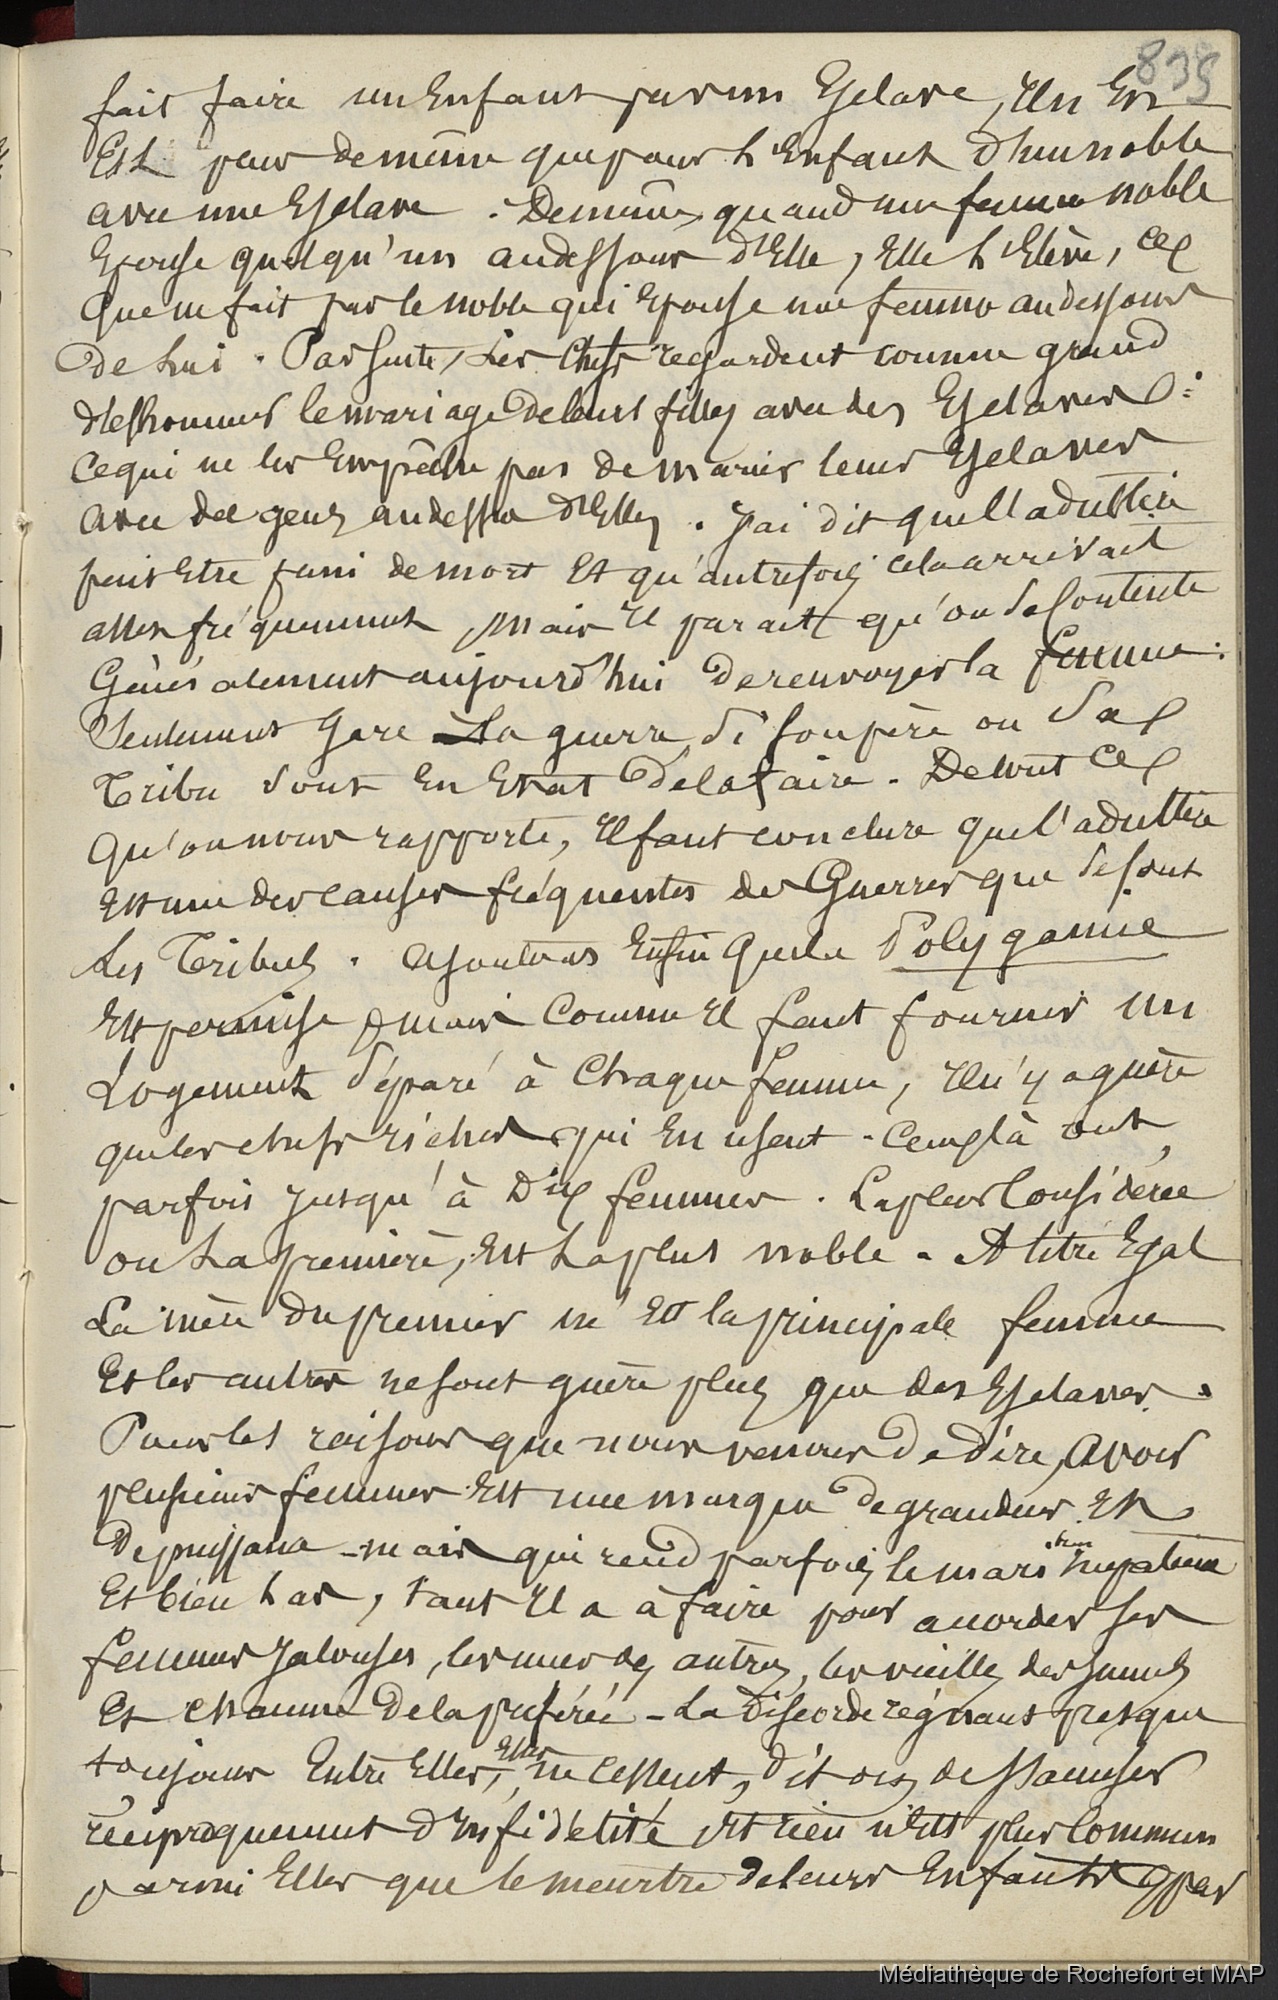 835
fait faire un Enfant par un Esclave, Il n'En
Est pas de même que pour l'Enfant d'un noble
avec une Esclave. De même, quand une femme noble
Epouse quelqu'un au dessous d'Elle, Elle l'Elève, ce
que ne fait pas le noble qui Epouse une femme au dessous
de lui. Par suite, Les Chefs regardent comme grand
deshonneur le mariage de leurs filles avec des Esclaves :
Ce qui ne les Empêche pas de marier leurs Esclaves
avec des gens au dessus d'Elles. J'ai dit que l'adultère
peut Etre puni de mort Et qu'autrefois cela arrivait
assez fréquemment, mais Il parait qu'on se contente
Généralement aujourd'hui de renvoyer la femme :
Seulement gare à la guerre, si son père ou sa
Tribu sont En Etat de la faire. De tout ce
qu'on nous rapporte, Il faut conclure que l'adultère
Est une des causes fréquentes des Guerres que se font
Les Tribus. Ajoutons Enfin que la Polygamie
Est permise, mais comme Il faut fournir un
Logement séparé à Chaque femme, Il n'y a guère
que les chefs riches qui En usent. Ceux là ont
parfois jusqu'à Dix femmes. La plus Considérée
ou La première, Est La plus noble. A titre Egal
La mère du premier né Est la principale femme
Et les autres ne sont guère plus que des Esclaves.
Pour les raisons que nous venons de dire, avoir
plusieurs femmes Est une marque de grandeur Et
De puissance - mais qui rend parfois le mari bien
Et bien las, tant Il a à faire pour accorder ses
femmes jalouses, les unes des autres, les vieilles des jeunes
Et chacune de la préférée - La Discorde régnant presque
toujours Entre Elles, Elles ne cessent, dit on, de s'accuser
réciproquement d'Infidélité Et rien n'Est plus Commun
parmi Elles que le meurtre de leurs Enfants par
Médiathèque de Rochefort et MAP